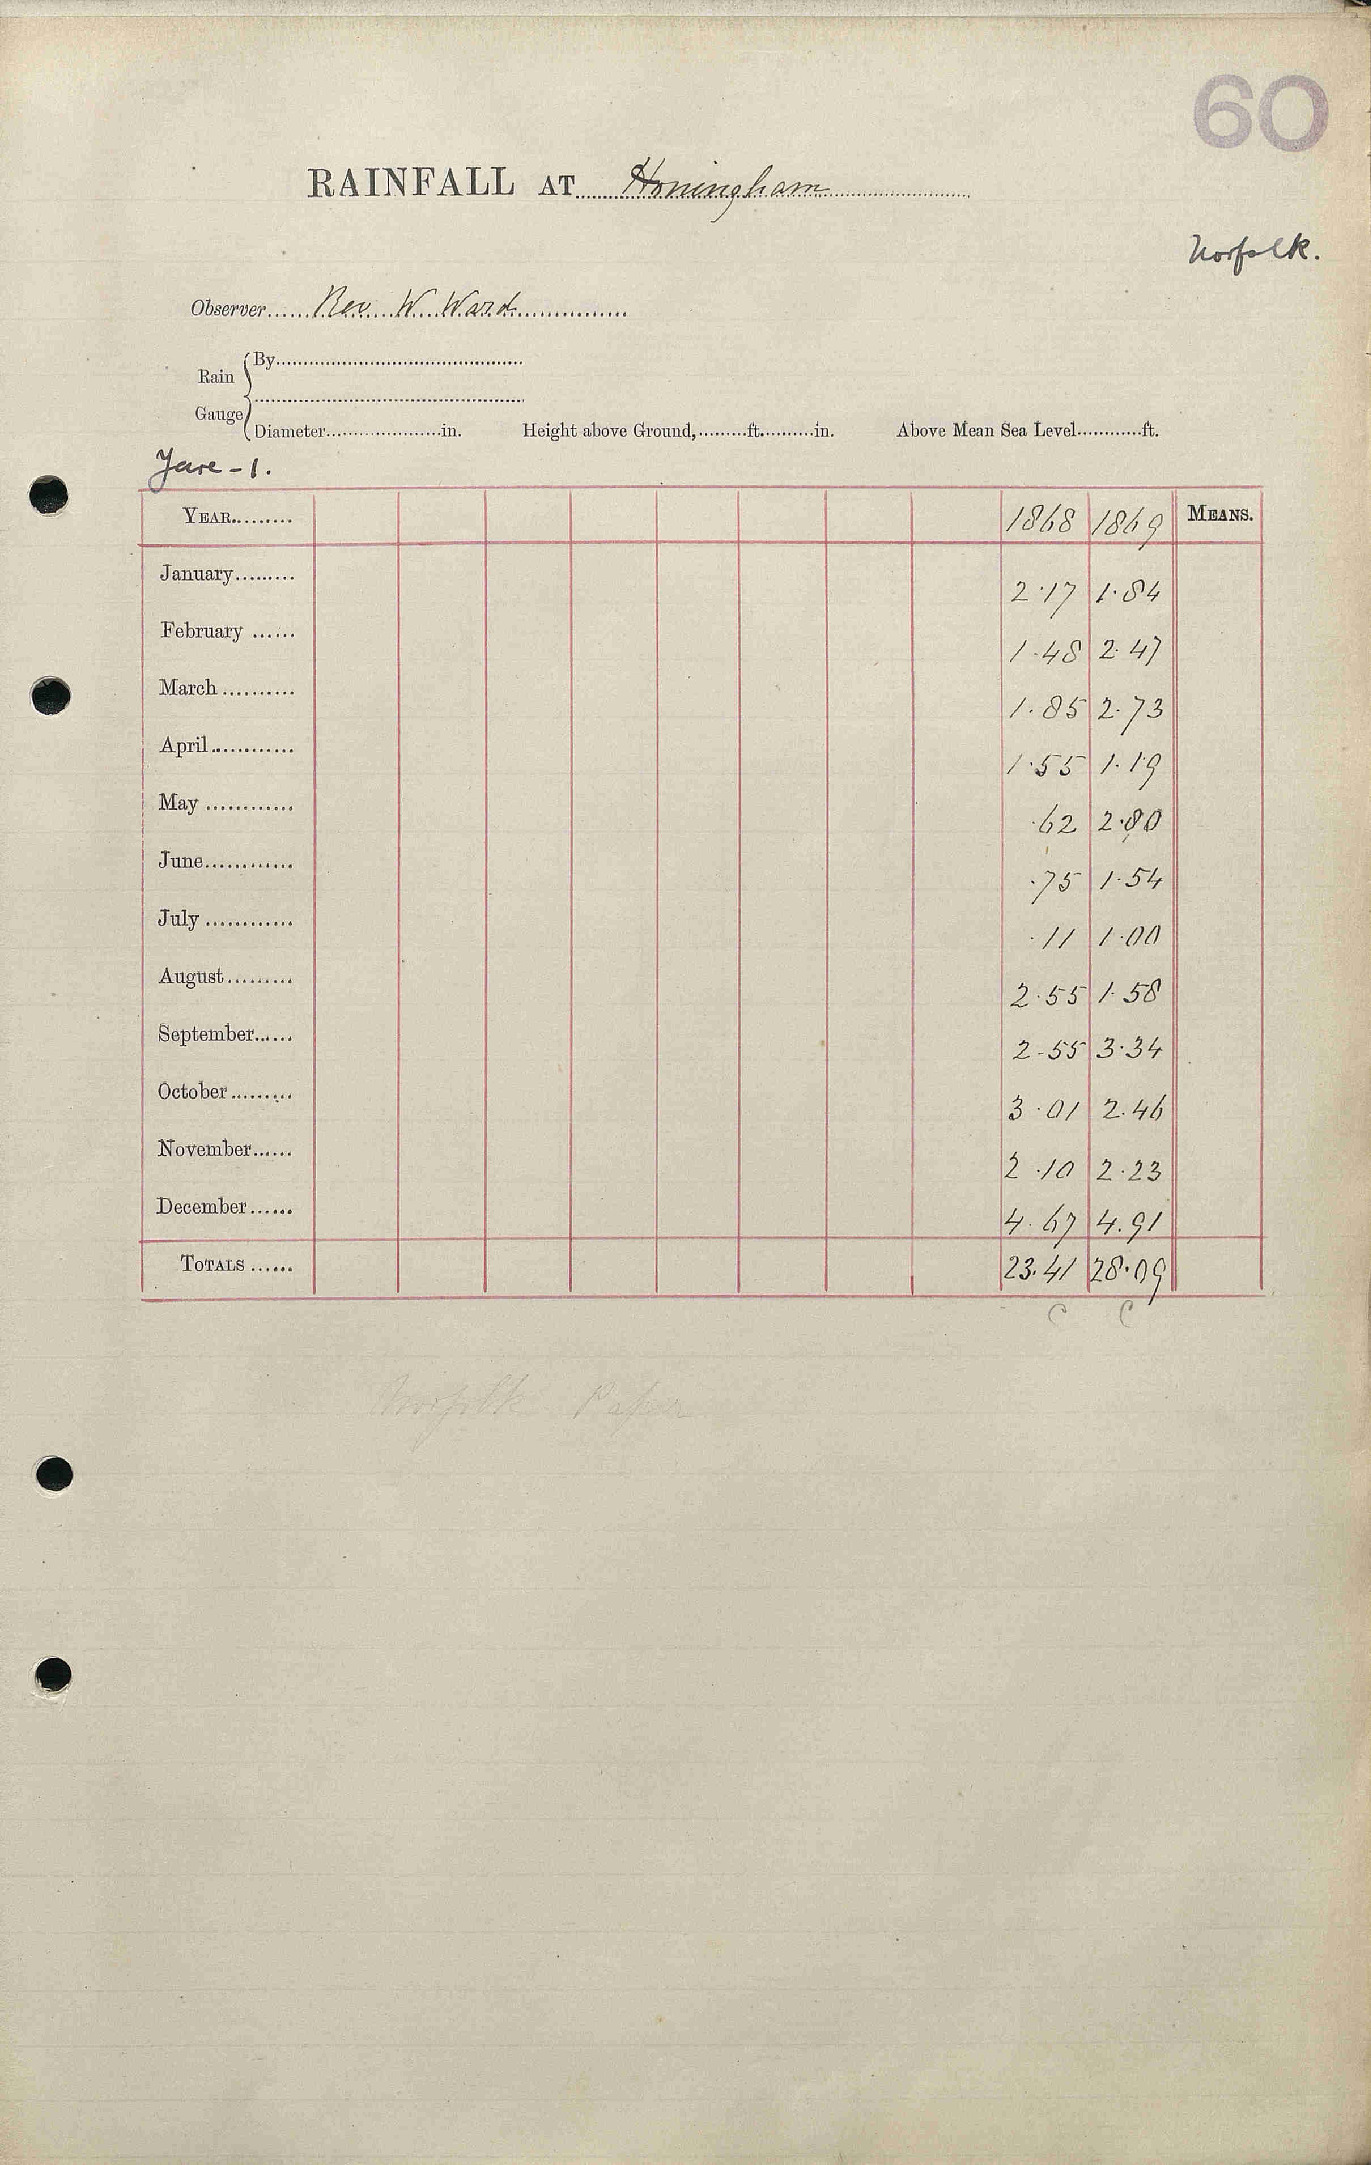 60
RAINFALL AT Honingham
Norfolk.
Observer Rev W Ward
Rain Gauge
By
Diameter in. Height above Ground, ft. in. Above Mean Sea Level ft.
Yare - 1.
YEAR 1868 1869 MEANS.
January 2.17 1.84
February 1.48 2.47
March 1.85 2.73
April 1.55 1.19
May .62 2.80
June .75 1.54
July .11 1.00
August 2.55 1.58
September 2.55 3.34
October 3.01 2.46
November 2.10 2.23
December 4.67 4.91
TOTALS 23.41 28.09
C C
Norfolk Paper